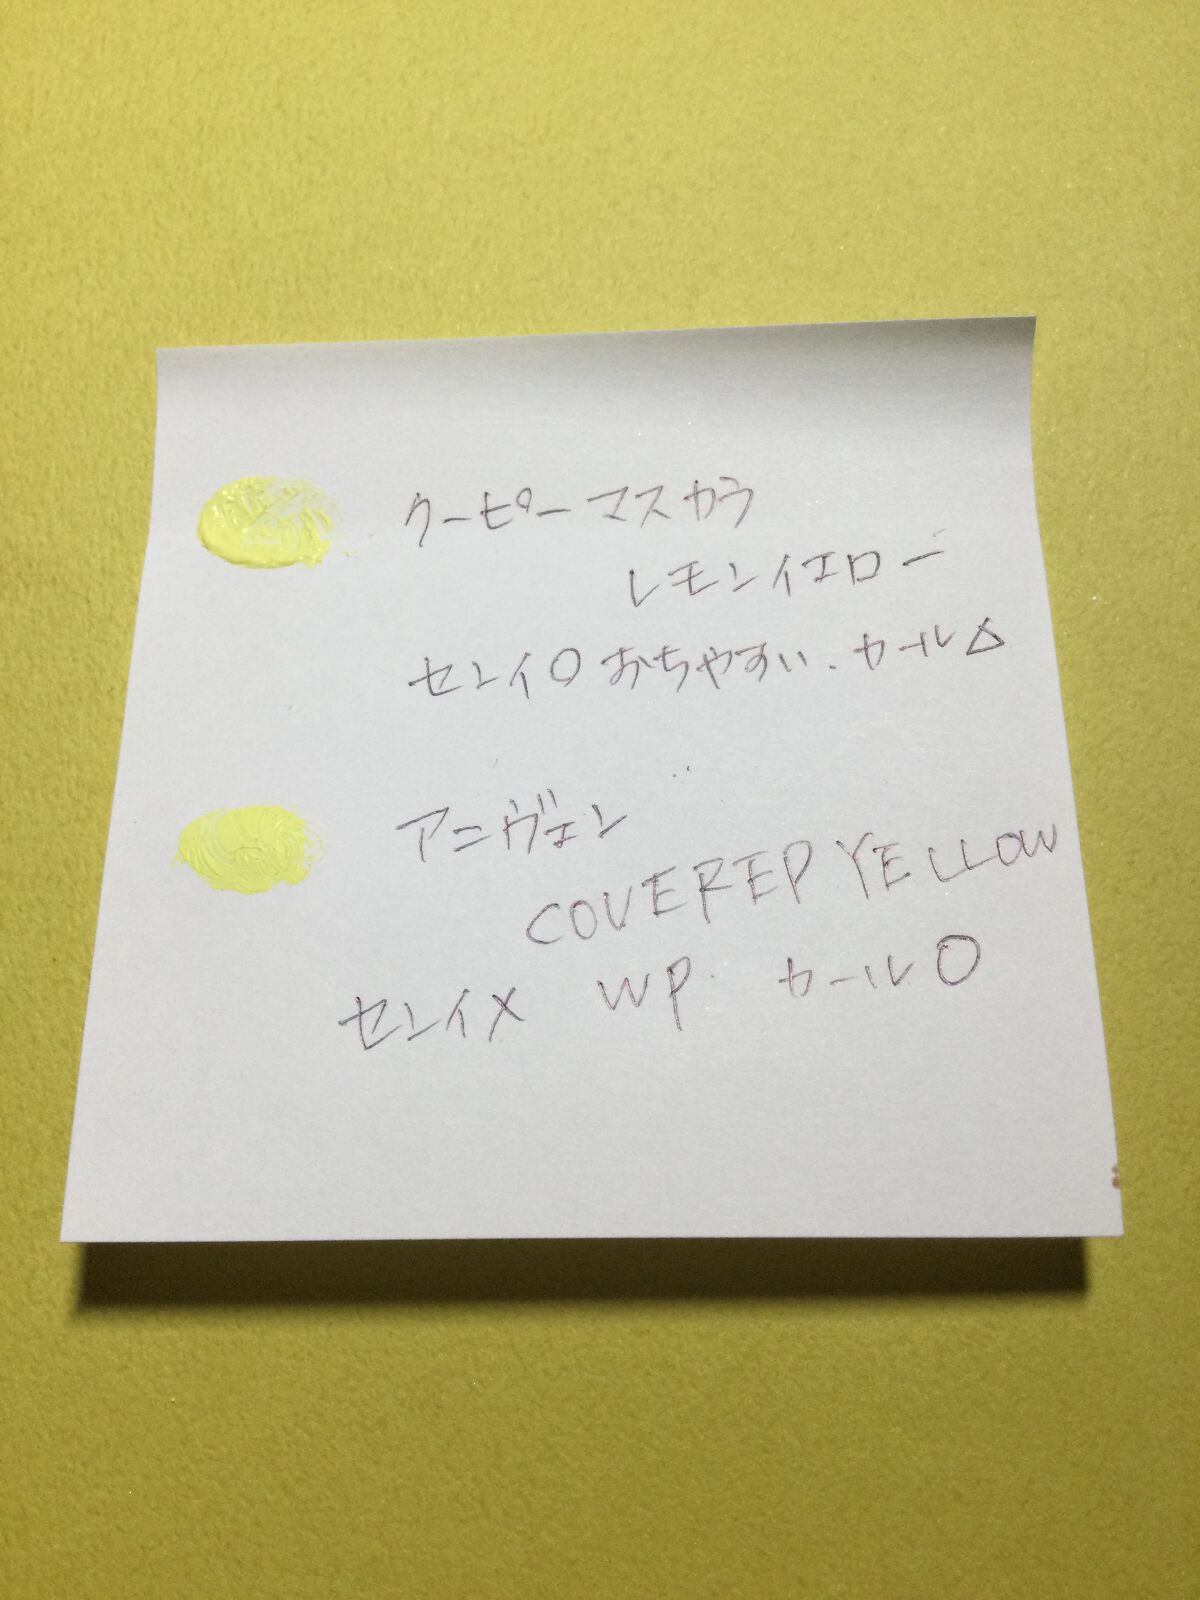 クーピーマスカラ
レモンイエロー
センイ〇おちやすい.カール△
アニヴェン
COVERED YELLOW
センイ× WP. カール〇